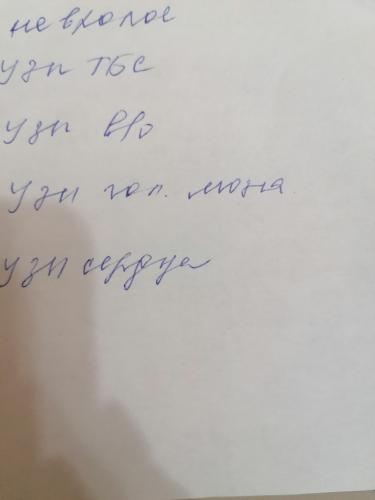 невролог
Узи ТБС
Узи в/о
Узи гол. мозга
Узи сердца